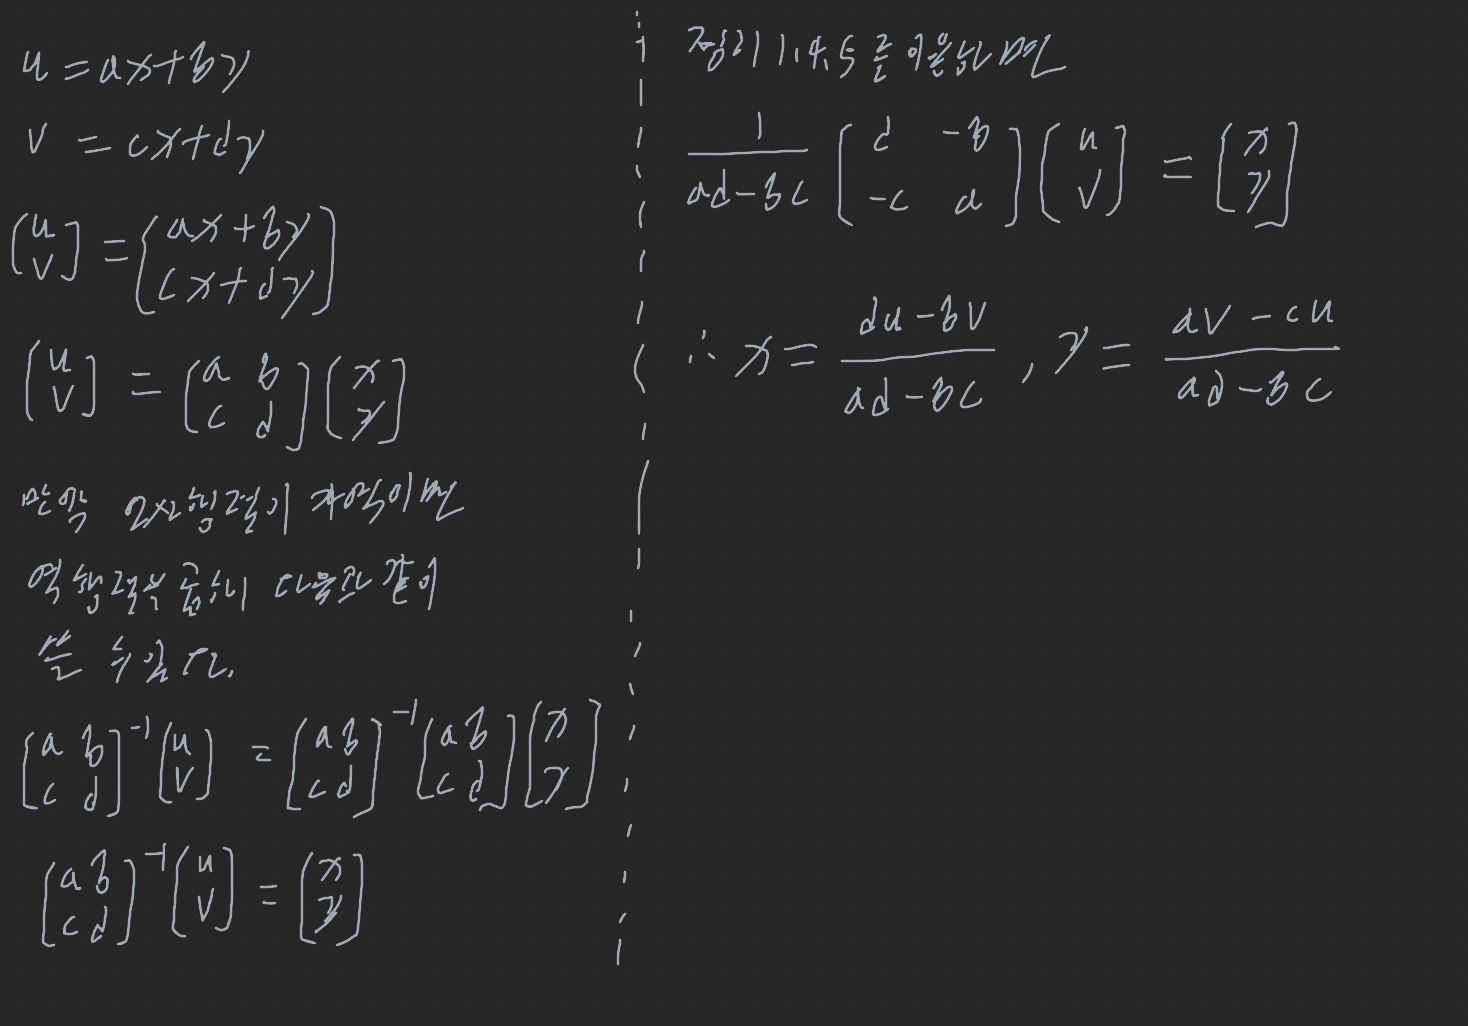 u = ax + by
v = cx + dy
[u v] = [ax + by cx + dy]
[u v] = [a b c d] [x y]
만약 2x2행렬이 가역이면
역행렬을 곱하여 다음과 같이
쓸 수 있다.
[a b c d]⁻¹ [u v] = [a b c d]⁻¹ [a b c d] [x y]
[a b c d]⁻¹ [u v] = [x y]
정리 1.4.5를 이용하면
1/(ad - bc) [d -b -c a] [u v] = [x y]
∴ x = (du - bv)/(ad - bc), y = (av - cu)/(ad - bc)